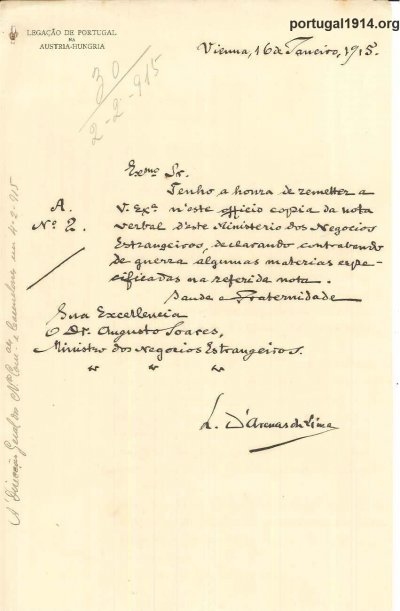 portugal1914.org
LEGAÇÃO DE PORTUGAL
NA
AUSTRIA-HUNGRIA
Vienna, 16 de Janeiro, 1915.
30
2-2-915
Exmo Sr.
Tenho a honra de remetter a
V. Exª n'este officio copia da nota
verbal d'este Ministerio dos Negocios
Estrangeiros, declarando contrabando
de guerra algumas materias espe-
cificadas na referida nota.
Saude e Fraternidade
A.
Nº 2.
Sua Excellencia
O Dr. Augusto Soares,
Ministro dos Negocios Estrangeiros.
L. d'Arenas de Lima
Á Direcção Geral dos Neg. Com. e Consulares em 4-2-915